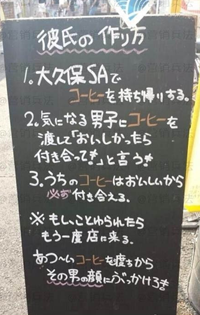 彼氏の作り方
1.大久保SAで
コーヒーを持ち帰りする。
2.気になる男子にコーヒーを
渡して「おいしかったら
付き合って*」と言う*
3.うちのコーヒーはおいしいから
必ず付き合える。
※もしことわられたら
もう一度店に来る。
あつ〜いコーヒーを渡すから
その男の顔にぶっかけろ*